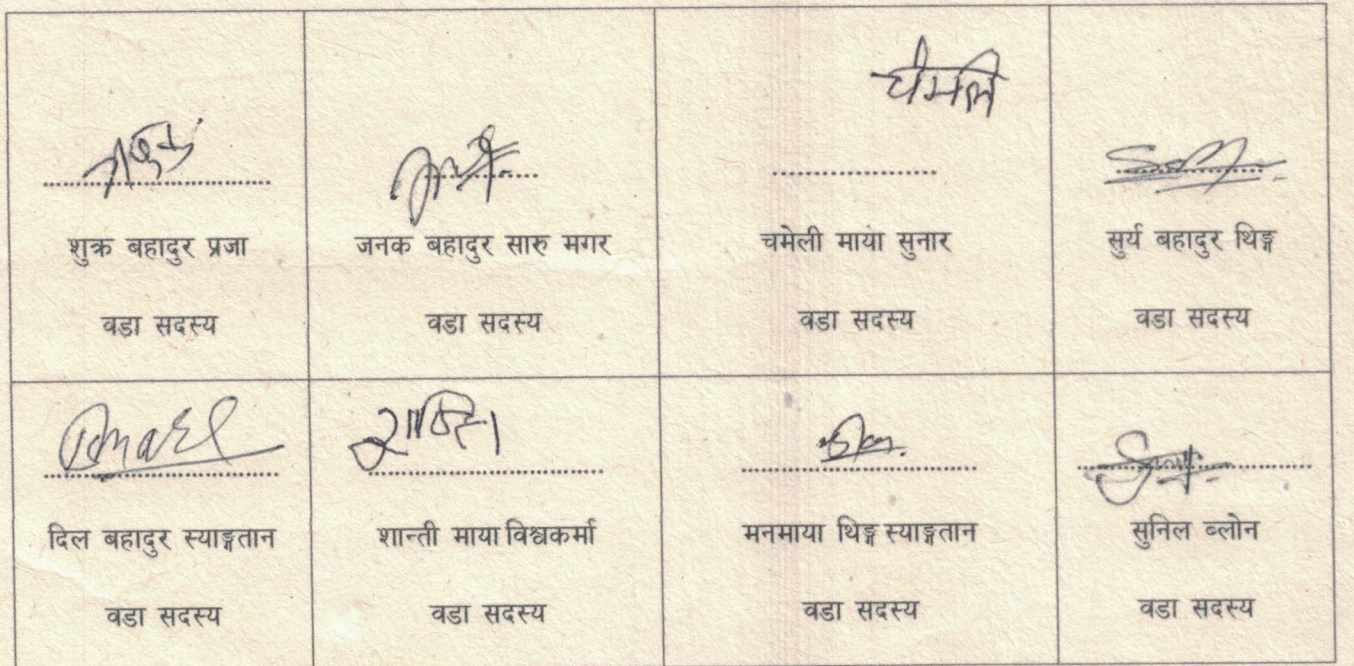 चमेलि
शुक्र बहादुर प्रजा
वडा सदस्य
जनक बहादुर सारु मगर
वडा सदस्य
चमेली माया सुनार
वडा सदस्य
सुर्य बहादुर थिङ्ग
वडा सदस्य
शान्ति
दिल बहादुर स्याङ्गतान
वडा सदस्य
शान्ती माया विश्वकर्मा
वडा सदस्य
मनमाया थिङ्ग स्याङ्गतान
वडा सदस्य
सुनिल ब्लोन
वडा सदस्य